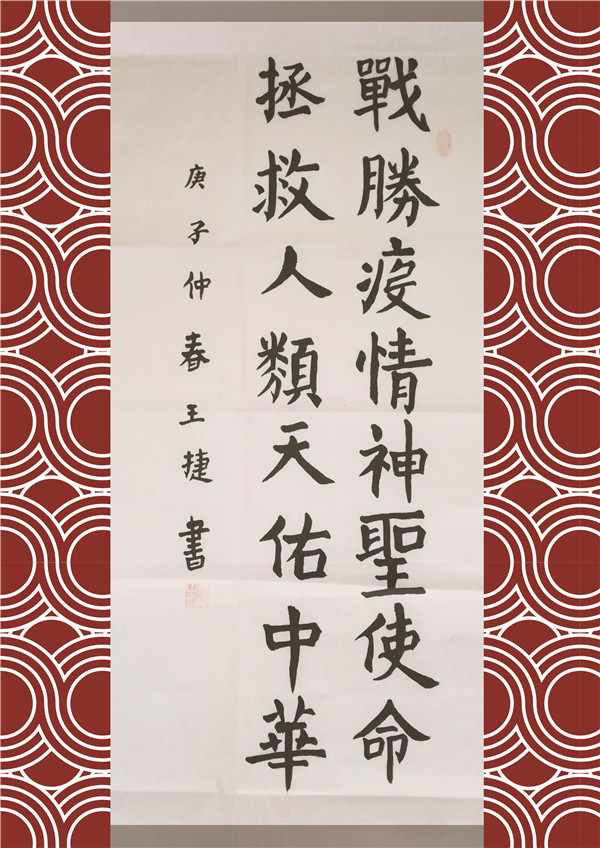 戰勝疫情神聖使命
拯救人類天佑中華
庚子仲春王捷書